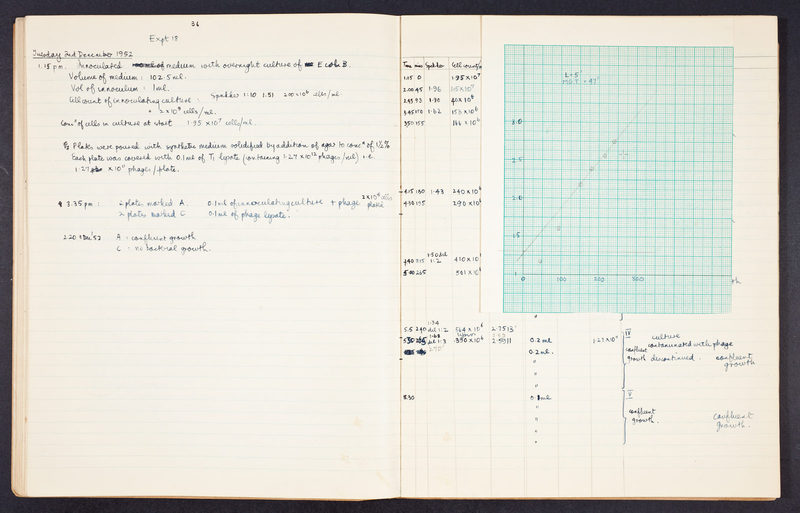 36
Expt 18
Tuesday 2nd December 1952
1:15 p.m. Innoculated medium with overnight culture of E Coli B.
Volume of medium: 102.5 ml.
Vol of innoculum: 1ml.
Cell count of innoculating culture: Spekker 1:10 1.51 200 × 10⁶ cells/ml
= 2 × 10⁹ cells/ml.
Concⁿ of cells in culture at start 1.95 × 10⁷ cells/ml.
Plates were poured with synthetic medium solidified by addition of agar to concⁿ of 1½%
Each plate was covered with 0.1ml of T₁ lysate (containing 1.27 × 10¹² phages/ml) i.e.
1.27 × 10¹¹ phages/plate.
3.35pm: 2 plates marked A. 0.1ml of innoculating culture + phage 2×10⁸ cells plate
2 plates marked C 0.1ml of phage lysate.
A: confluent growth
C: no bacterial growth.
Time mins Spekker Cell count/ml
1.15 0 1.95 × 10⁷
2.00 45 1.96 1.5 × 10⁷
2.45 93 1.80 40 × 10⁶
3.45 150 1.62 153 × 10⁶
3.50 155 166 × 10⁶
4.15 180 1.43 240 × 10⁶
4.30 195 290 × 10⁶
1.50 del
4.40 215 1:2 410 × 10⁶
5.00 225 501 × 10⁶
1.34
5.5 240 del 1:2 564 × 10⁶ 2.7513
5.30 del 1:3 390 × 10⁶ 2.5911 0.2 ml 1.27 × 10¹¹
0.2 ml.
"
"
8.30 0.1ml
"
"
"
"
IV
culture
contaminated with phage
confluent
growth discontinued. confluent
growth
V
confluent
growth.
confluent
growth.
L = 5'
M.G.T. = 47'
3.0
2.5
2.0
1.5
1
0 100 200 300
th